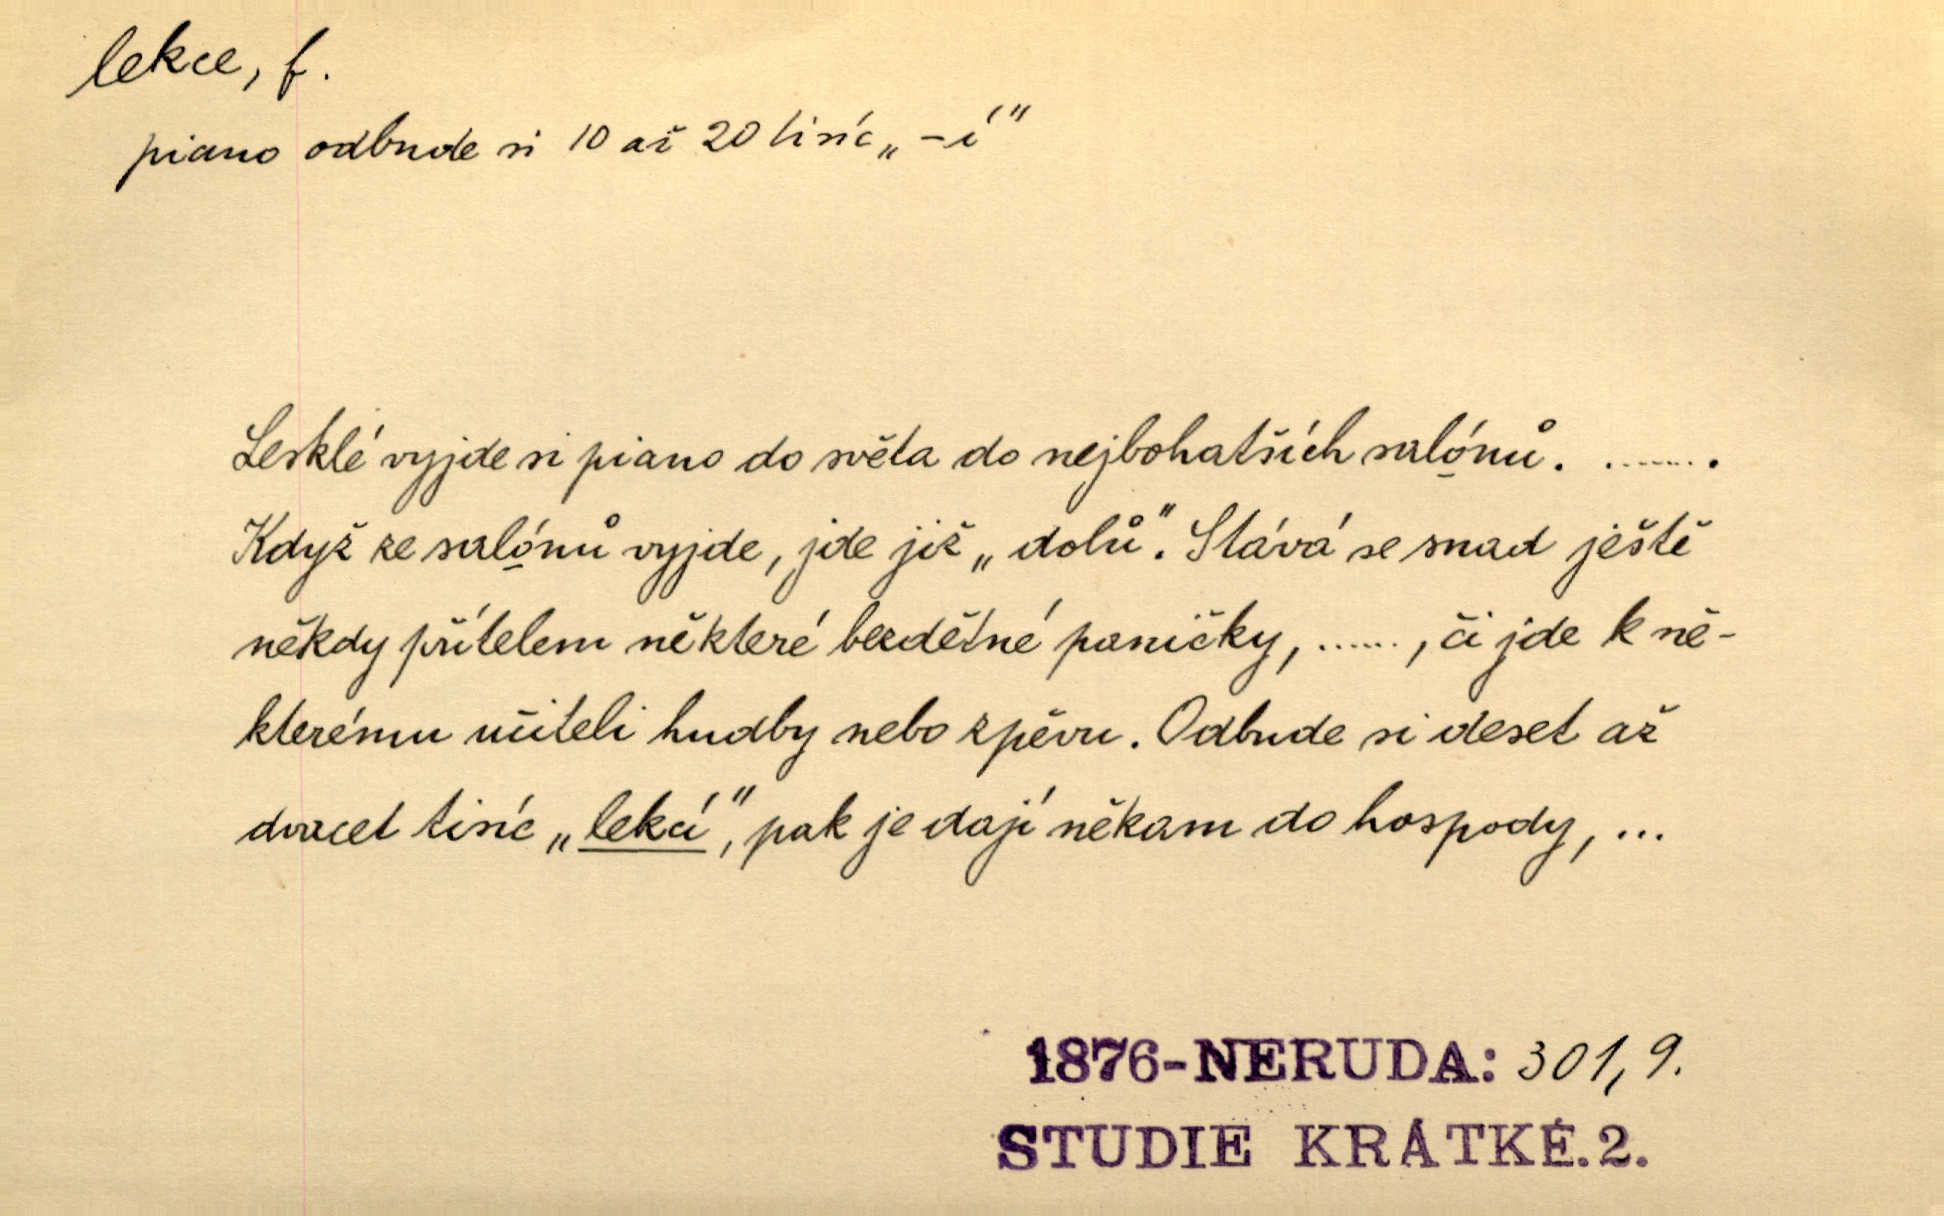 lekce, f.
piano odbude si 10 až 20 tisíc „-í"
Lesklé vyjde si piano do světa do nejbohatších salónů. ........
Když ze salónů vyjde, jde již „dolů". Stává se snad ještě
někdy přítelem některé bezdětné paničky, ......, či jde k ně-
kterému učiteli hudby nebo zpěvu. Odbude si deset až
dvacet tisíc „lekcí", pak je dají někam do hospody, ...
1876-NERUDA: 301, 9.
STUDIE KRÁTKÉ.2.